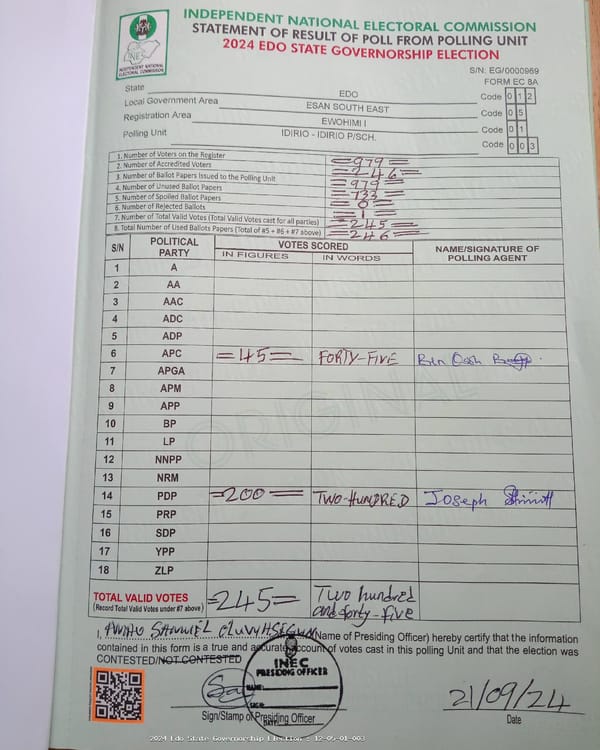 INDEPENDENT NATIONAL ELECTORAL COMMISSION
STATEMENT OF RESULT OF POLL FROM POLLING UNIT
2024 EDO STATE GOVERNORSHIP ELECTION
INEC
INDEPENDENT NATIONAL
ELECTORAL COMMISSION
S/N: EG/0000969
FORM EC 8A
State EDO Code 0 1 2
Local Government Area ESAN SOUTH EAST Code 0 5
Registration Area EWOHIMI I Code 0 1
Polling Unit IDIRIO - IDIRIO P/SCH. Code 0 0 3
1. Number of Voters on the Register =979=
2. Number of Accredited Voters =246=
3. Number of Ballot Papers Issued to the Polling Unit =979=
4. Number of Unused Ballot Papers =733=
5. Number of Spoiled Ballot Papers =0=
6. Number of Rejected Ballots =1=
7. Number of Total Valid Votes (Total Valid Votes cast for all parties) =245=
8. Total Number of Used Ballots Papers (Total of #5 + #6 + #7 above) =246=
S/N POLITICAL PARTY VOTES SCORED NAME/SIGNATURE OF POLLING AGENT
IN FIGURES IN WORDS
1 A
2 AA
3 AAC
4 ADC
5 ADP
6 APC =45= FORTY-FIVE
7 APGA
8 APM
9 APP
10 BP
11 LP
12 NNPP
13 NRM
14 PDP =200= TWO-HUNDRED Joseph
15 PRP
16 SDP
17 YPP
18 ZLP
ORIGINAL
TOTAL VALID VOTES =245= Two hundred and forty-five
(Record Total Valid Votes under #7 above)
I, SAMUEL (Name of Presiding Officer) hereby certify that the information
contained in this form is a true and accurate account of votes cast in this polling Unit and that the election was
CONTESTED/NOT CONTESTED
INEC
PRESIDING OFFICER
NAME:
SIGN:
DATE:
Sign/Stamp of Presiding Officer
21/09/24
Date
2024 Edo State Governorship Election - 12-05-01-003